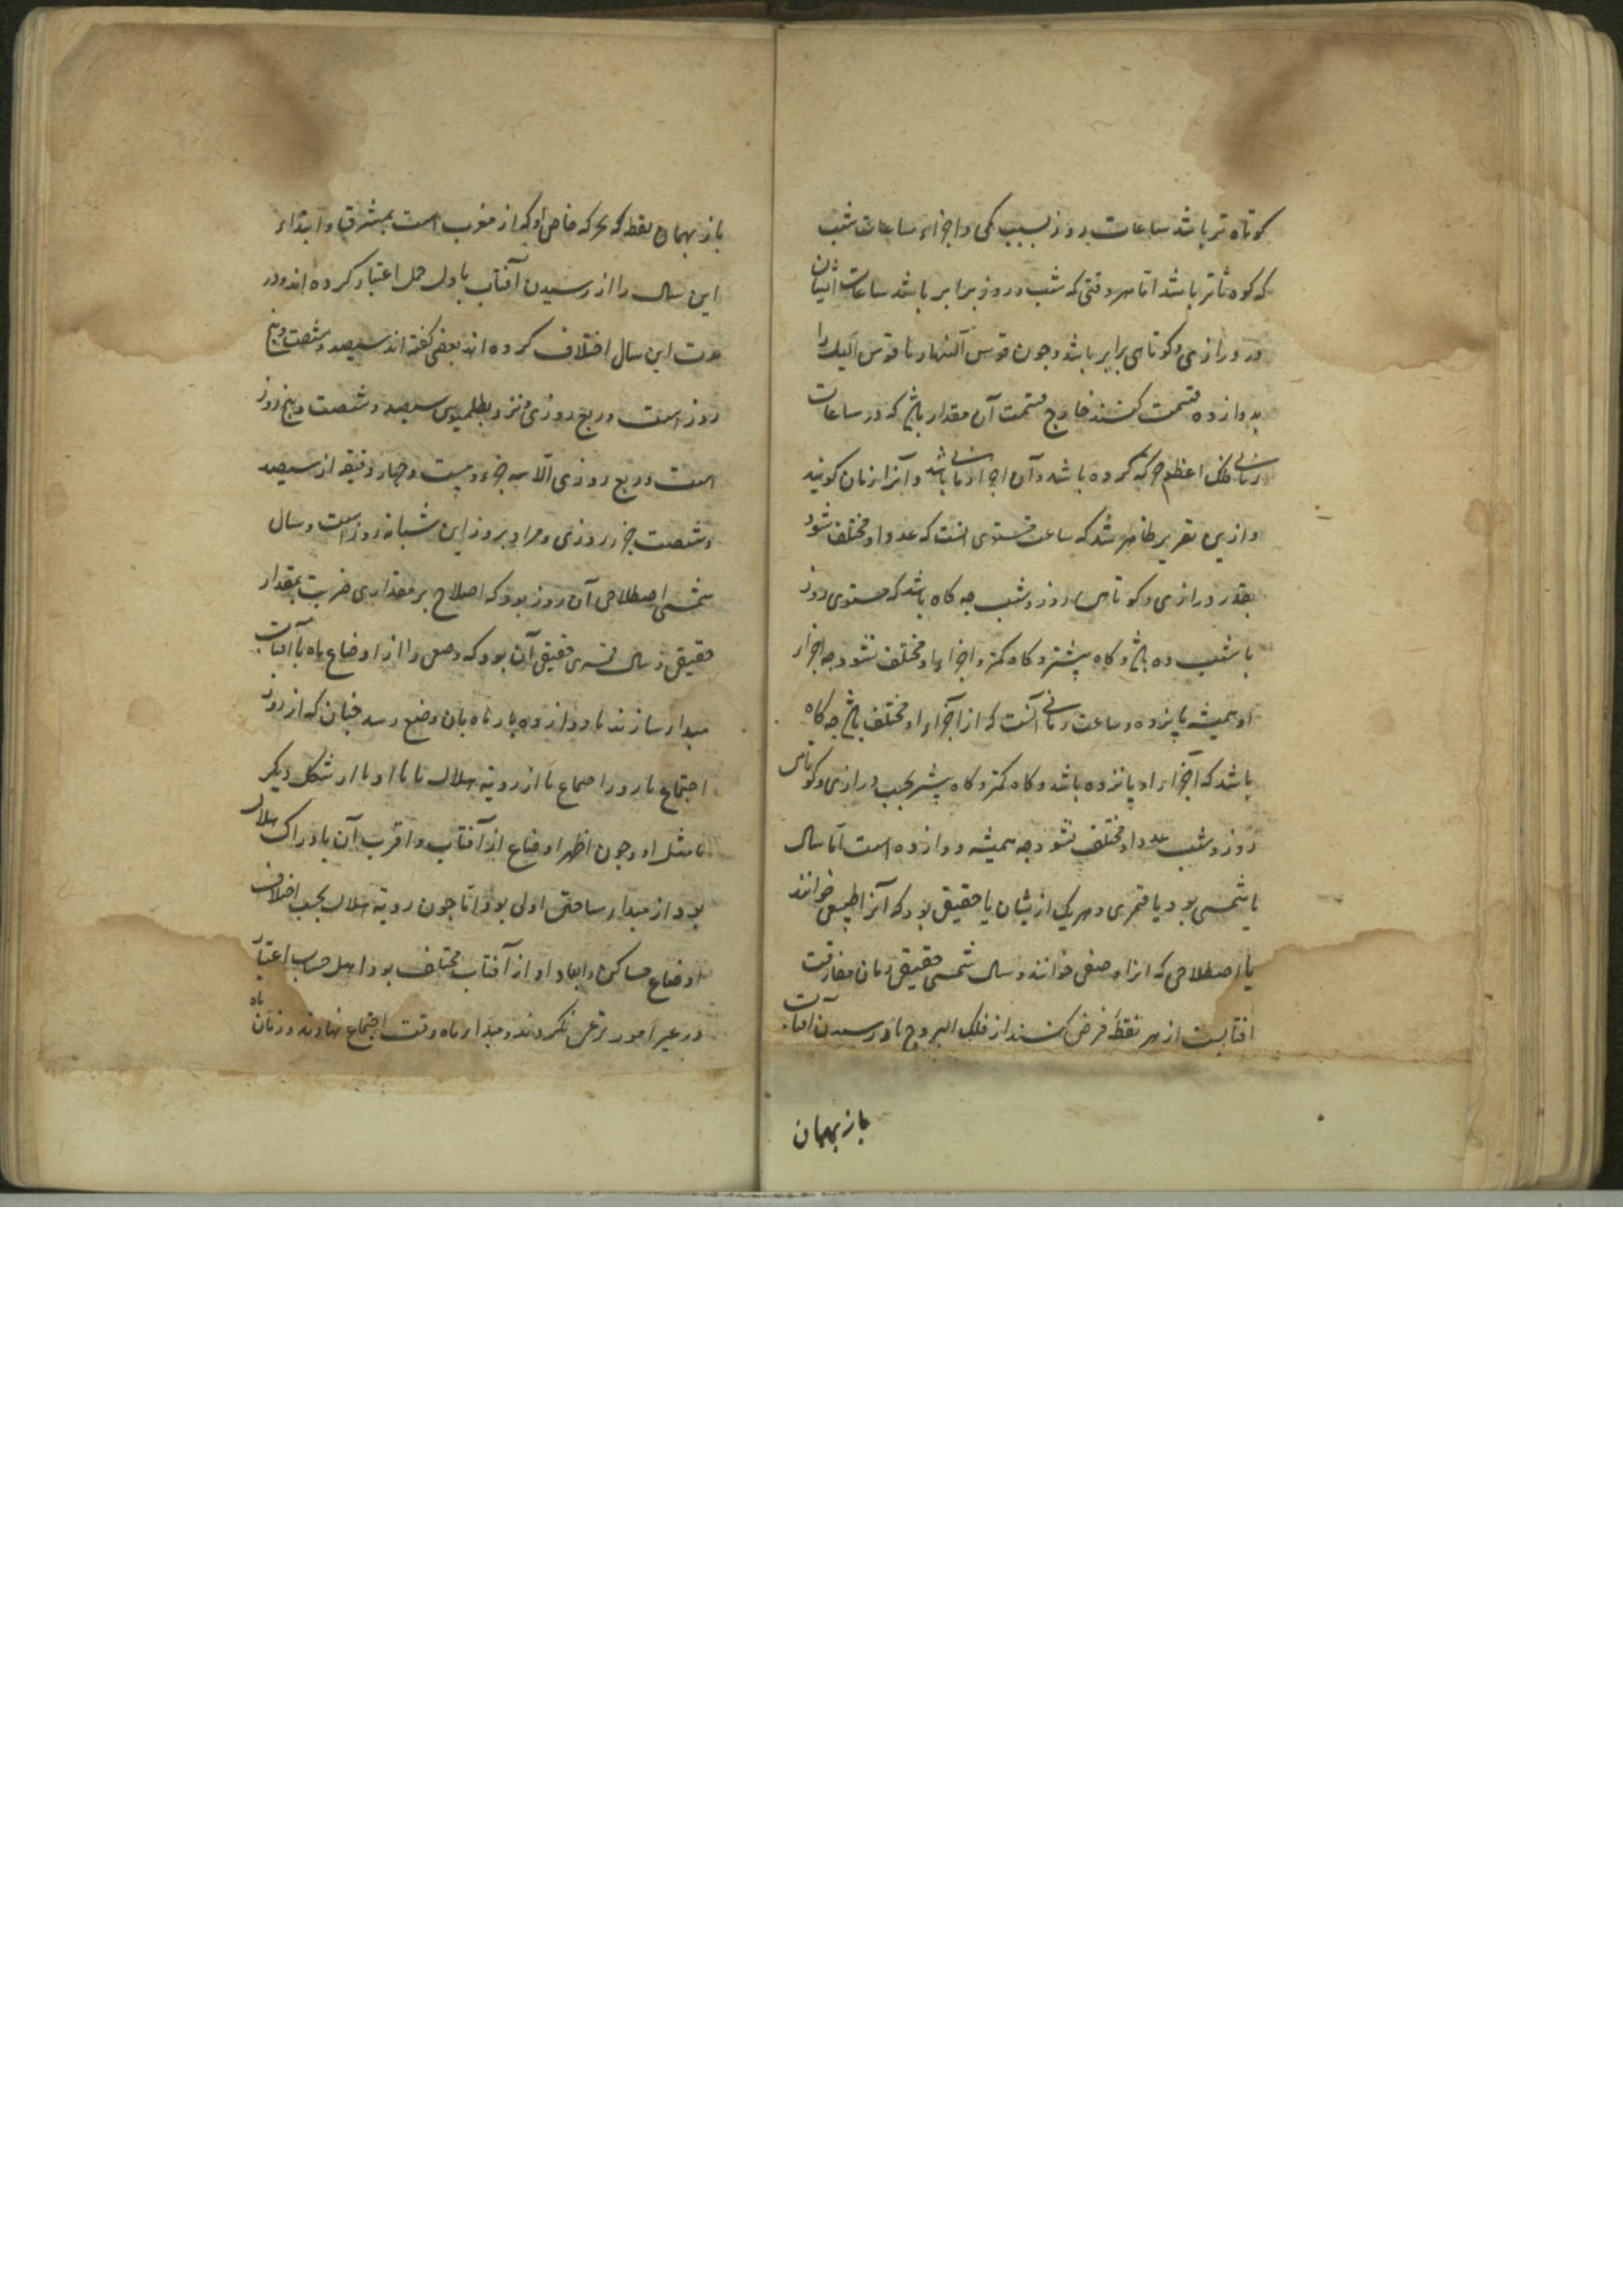 کوتاه تر باشد ساعات روز بسبب کمی و اجزاء ساعات شب
که کوتاتر باشد اما هر وقتی که شب و روز برابر باشد ساعات ایشان
در درازی و کوتاهی برابر باشد و جون قوس النهار یا قوس اللیل را
بدوازده قسمت کنند خارج قسمت آن مقدار باشد که در ساعات
زمانی فلک اعظم حرکه کرده باشد و آن اجزا زمانی باشد و آنرا زمان کویند
و ازین تقریر ظاهر شد که ساعت مستوی آنست که عدد او مختلف شود
بقدر درازی و کوتاهی روز و شب جه کاه باشد که مستوی روز
یا شب ده باشد و کاه بیشتر و کاه کمتر و اجزاء او مختلف نشود جه اجزاء
او همیشه پانزده و ساعت زمانی آنست که از اجزاء او مختلف باشد جه کاه
باشد که اجزاء او پانزده باشد و کاه کمتر و کاه بیشتر بحسب درازی و کوتاهی
روز و شب عدد او مختلف نشود جه همیشه دوازده است اما سال
یا شمسی بود یا قمری و هر یک ازیشان یا حقیقی بود که آنرا طبیعی خوانند
یا اصطلاحی که انرا وضعی خوانند و سال شمسی حقیقی زمان مفارقت
افتابست از هر نقطه فرض کنند از فلک البروج تا رسیدن افتاب
باز بهمان
باز بهمان نقطه که بحرکه خاص او که از مغرب است بمشرق و ابتداء
این سال را از رسیدن آفتاب باول حمل اعتبار کرده اند و در
مدت این سال اختلاف کرده اند بعضی کفته اند سیصد و شصت و پنج
روز است و ربع روزی و نزد بطلمیوس سیصد و شصت و پنج روز
است و ربع روزی الا سه جزء و بیست و جهار دقیقه از سیصد
و شصت جزء روزی و مراد بروز این شبانه روز است و سال
شمسی اصطلاحی آن روز بود که اصلاح بر مقداری قریب بمقدار
حقیقی و سال قمری حقیقی آن بود که وضعی را از اوضاع ماه با آفتاب
مبداء سازند تا دوازده بار ماه بان وضع رسد جنان که از روز
اجتماع تا روز اجتماع یا از رویة هلال تا با او یا از شکل دیکر
تا مثل او و جون اظهر اوضاع از آفتاب و اقرب آن بادراک هلال
بود از مبداء ساختن اولی بود اما جون رویة هلال بحسب اختلاف
اوضاع مساکن و ابعاد او از آفتاب مختلف بود اهل حساب اعتبار
در غیر امور شرعی نکردند و مبداء ماه وقت اجتماع نهادند و زمان ماه